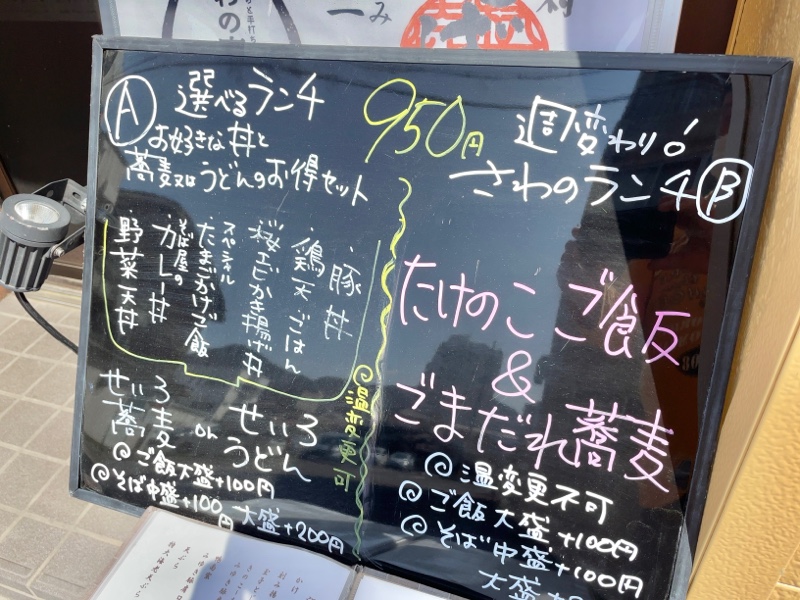 Ⓐ 選べるランチ
お好きな丼と
蕎麦又はうどんのお得セット
950円
週変わり!
さわのランチ Ⓑ
・豚丼
・鶏天ごはん
・桜エビかき揚げ丼
・スペシャルたまごかけご飯
・そば屋のカレー丼
・野菜天丼
せいろ蕎麦 or せいろうどん
◎温変更可
◎ご飯大盛+100円
◎そば中盛+100円 大盛+200円
たけのこご飯
&
ごまだれ蕎麦
◎温変更不可
◎ご飯大盛+100円
◎そば中盛+100円
大盛+